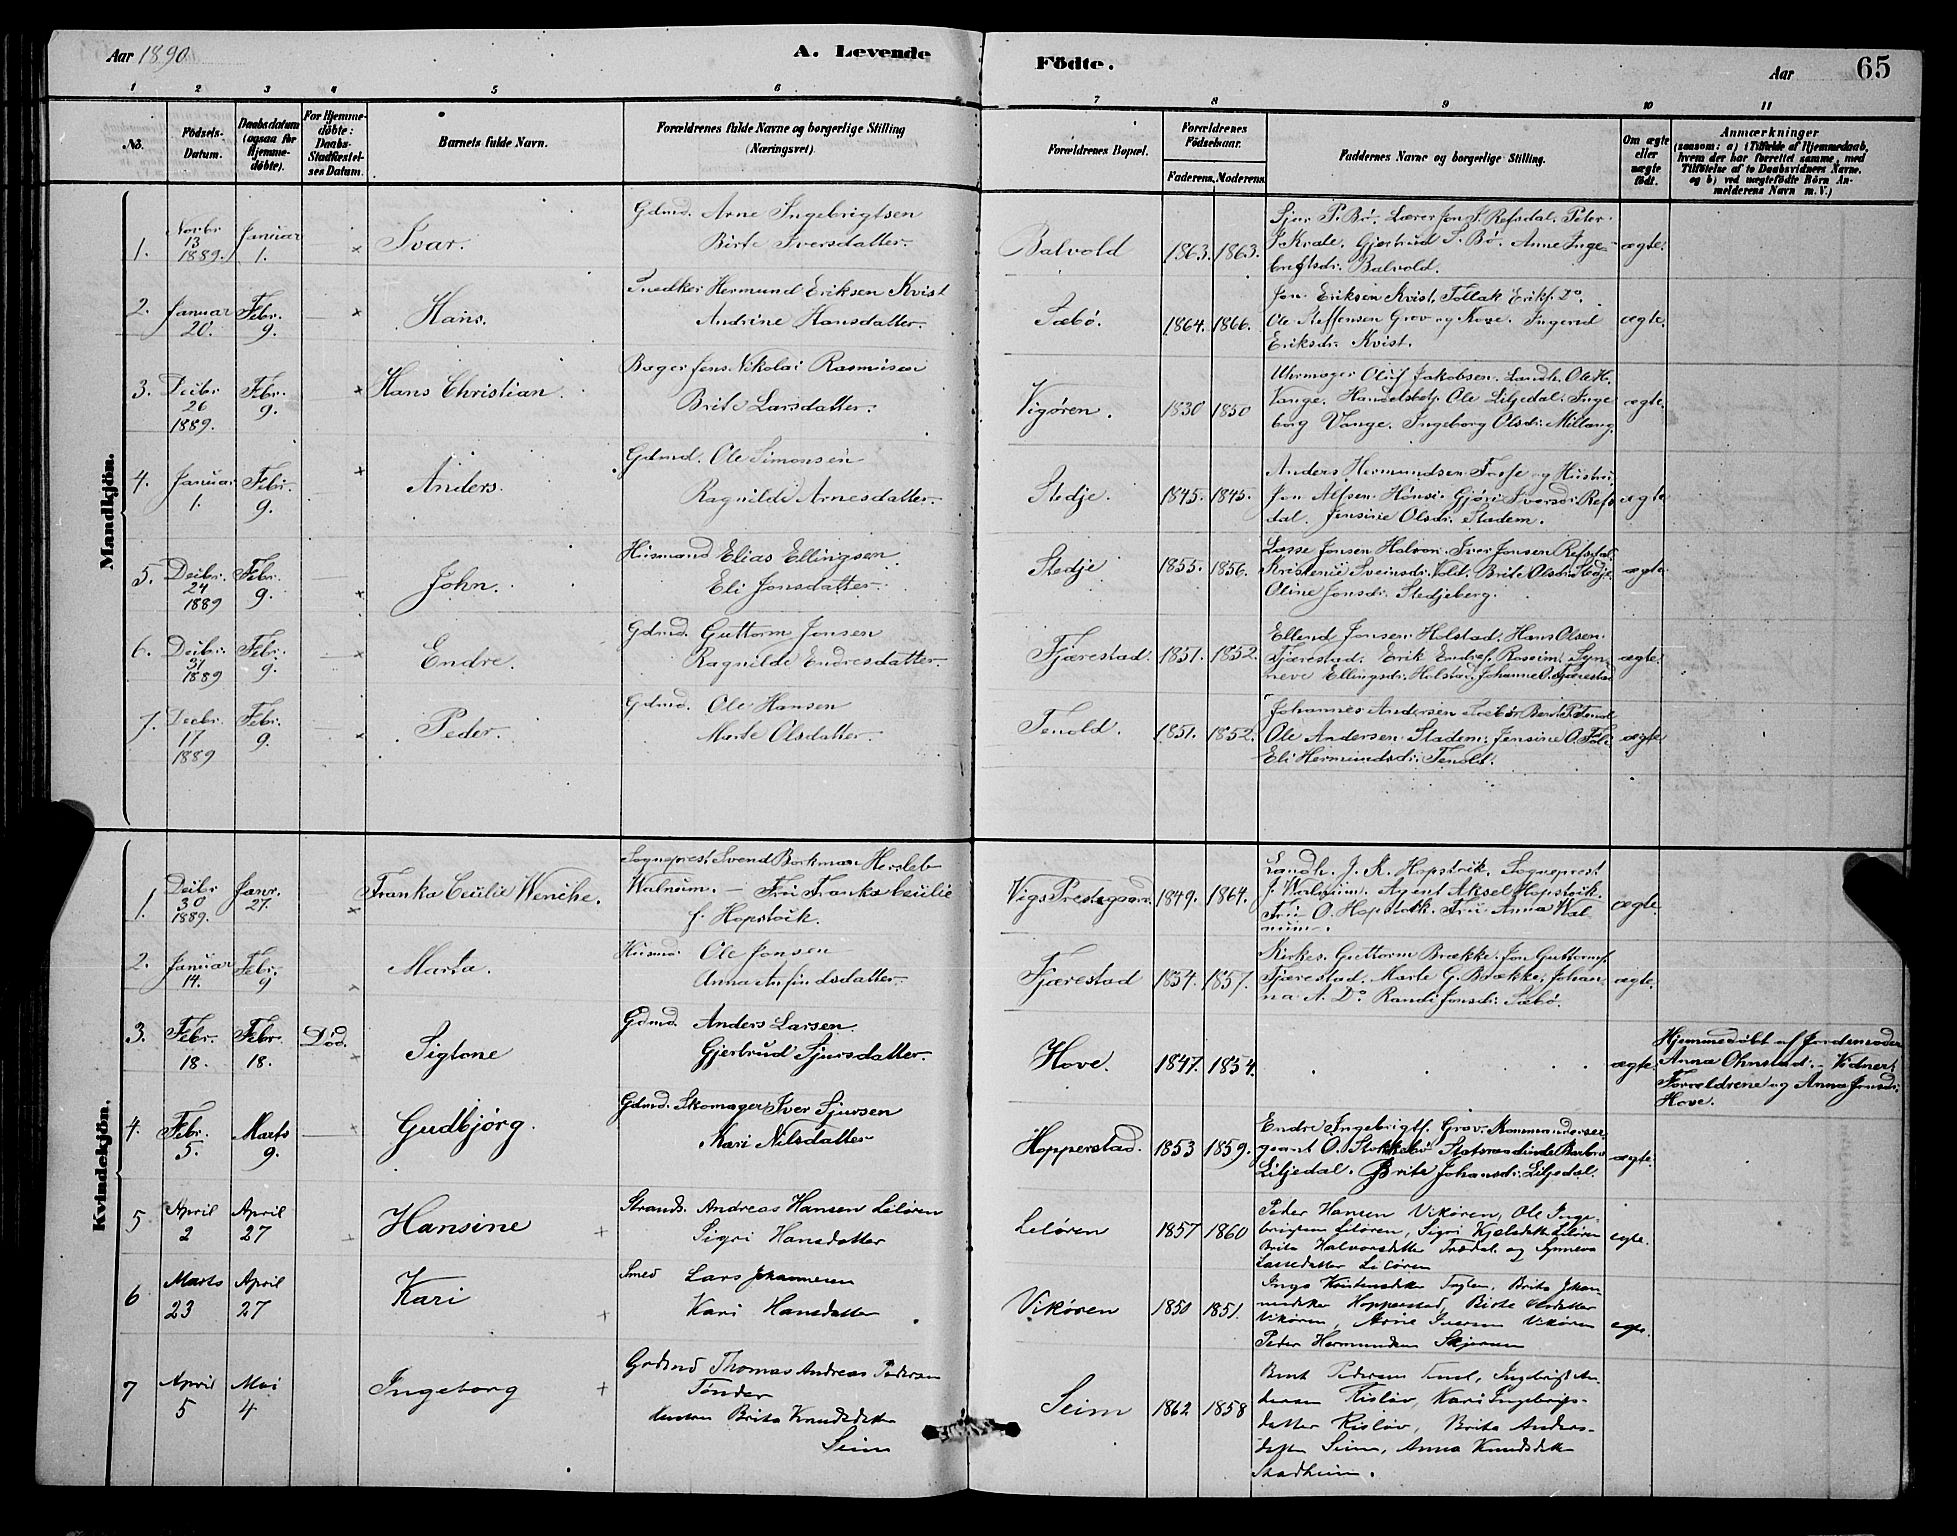 Aar 1890
A. Levende Födte.
Aar 65
1 2 3 4 5 6 7 8 9 10 11
No. Födsels-Datum. Daabsdatum (ogsaa for Hjemmedöbte). For Hjemmedöbte: Daabs-Stadfæstelses Datum. Barnets fulde Navn. Forældrenes fulde Navne og borgerlige Stilling (Næringsvei). Forældrenes Bopæl. Forældrenes Födselsaar. Faderens. Moderens. Faddernes Navne og borgerlige Stilling. Om ægte eller uægte födt. Anmærkninger
(saasom: a) i Tilfælde af Hjemmedaab,
hvem der har forrettet samme, med
Tilföielse af to Daabsvidners Navne.
og b) ved uægtefödte Börn An-
melderens Navn m.V.)
Mandkjön.
1. Novbr 13 1889. Januar 1. Ivar. Gdmd. Arne Ingebrigtsen
Birte Iversdatter. Balvold 1863. 1863. ægte.
Sjur P. Bö. Lærer Jon J. Refsdal. Peter
J Krale. Gjertrud S. Bö. Anne Inge-
brigtsdr. Balvold.
2. Januar 20. Febr. 9. Hans. Snedker Hermund Eriksen Kvist
Andrine Hansdatter. Sæbö. 1864. 1866. ægte.
Jon Eriksen Kvist, Tollak Eriks. Do.
Ole Steffensen Grov og Kone. Ingerid
Eriksdr. Kvist.
3. Decbr 26 1889. Febr. 9. Hans Christian. Bager Jens Nikolai Rasmusen
Brite Larsdatter. Vigören. 1830 1850 ægte.
Uhrmager Oluf Jakobsen. Landh. Ole H.
Vange. Handelsbetj. Ole Liljedal. Inge
borg Vange. Ingeborg Olsdr. Midlang
4. Januar 1. Febr. 9. Anders. Gdmd. Ole Simonsen
Ragnilde Arnesdatter. Stedje. 1845. 1845. ægte
Anders Hermundsen Tryfe og Hustru
Jon Alfsen Hönsi. Gjöri Iversdr. Refs
dal. Jensine Olsdr. Stadem.
5. Decbr. 24 1889 Febr. 9. John. Husmand Elias Ellingsen
Eli Jonsdatter. Stedje 1855. 1856. ægte
Lasse Jonsen Halvori. Iver Jonsen Refsdal.
Kristense Sveinsdr. Vold. Brite Olsdr. Stedje
Oline Jonsdr. Stedjeberg.
6. Decbr. 31 1889 Febr. 9. Endre. Gdmd. Guttorm Jonsen
Ragnilde Endresdatter. Fjærestad. 1851. 1852. ægte.
Ellend Jonsen Holstad. Hans Olsen
Fjærestad. Erik Endres. Roseim. Syn-
neve Ellingsdr. Holstad. Johanne O. Fjærestad
7. Decbr. 17 1889 Febr. 9. Peder. Gdmd. Ole Hansen
Marte Olsdatter. Tenold. 1851. 1852. ægte
Johannes Andersen Sæbö. Bent P. Tenol
Ole Andersen Stadem. Jensine O. Föli
Eli Hermundsdr. Tenold.
Kvindekjön.
1. Decbr 30 1889. Janr. 27. Franka Cecilie Wencke. Sogneprest Svend Borkman Hersleb
Walnum. — Fru Franka Cecilie
f. Hopstock. Vigs Prestegaard. 1849. 1864. ægte.
Landh. J. R. Hopstock. Sogneprest
J. Walnum. Agent Aksel Hopstock.
Fru O. Hopstock. Fru Anna Wal
num.
2. Januar 14. Febr. 9 Marta. Husmd. Ole Jonsen
Anna Anfindsdatter. Fjærestad 1854. 1857. ægte.
Kirkes. Guttorm Brække. Jon Guttorms.
Fjærestad. Marte G. Brække. Johan-
na A. Do. Randi Jonsdr. Sæbö.
3. Febr. 18. Febr. 18. Död. Siglone Gdmd. Anders Larsen.
Gjertrud Sjursdatter. Hove. 1847. 1854. ægte.
Hjemmedöbt af Jordemoder
Anna Ohnstad. — Vidner:
Forældrene og Anna Jonsdr.
Hove.
4. Febr. 5. Marts 9. Gudbjörg. Gdmd. Skomager Iver Sjursen
Kari Nilsdatter Hopperstad. 1853 1859. ægte.
Endre Ingebrigts. Grov. Kommandeerser-
geant O. Stokkebö Statsraadinde Barbro
Liljedal. Brite Johansdr. Liljedal.
5 April 2 April 27 Hansine Strands. Andreas Hansen Lilören
Sigri Hansdatter Lilören 1857 1860 ægte.
Peder Hansen Vikören, Ole Inge-
brigtsen Lilören, Sigri Kjelsdtr. Lilören
Brita Halvorsdatter Tredal og Synneva
Lassedatter Lilören
6 Marts 23 April 27 Kari Smed Lars Johannesen
Kari Hansdatter Vikören 1850 1851. ægte.
Inga Kristensdtr Fosten, Brita Johan-
nesdtr Hopperstad, Birte Olsdatter
Vikören, Arne Iversen Vikören
Peder Hermundsen Skjerven
7 April 5 Mai 4 Ingeborg Grdmd Thomas Andreas Pedersen
Tönder
Hustru Brita Knudsdatter
Seim Seim 1862 1858
Bent Pedersen Tenol, Ingebrigt An-
dersen Rislöv, Kari Ingebrigts-
datter Rislöv, Brita Anders-
datter Seim, Anna Knudsdatter
Stadheim.